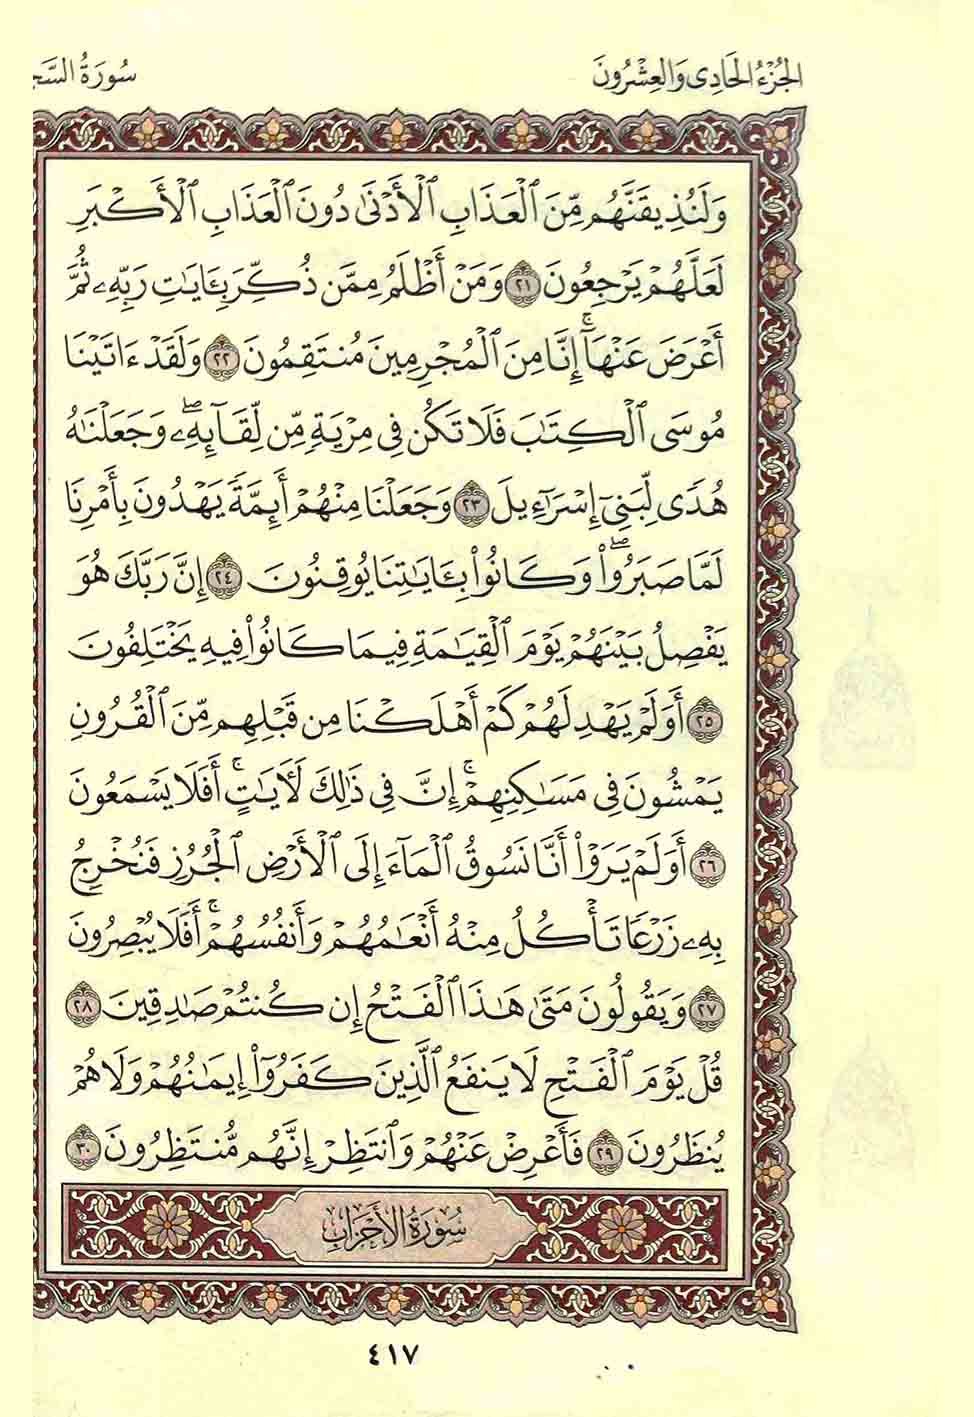 الجُزْءُ الحَادِي وَالعِشْرُونَ
سُورَةُ السَّجـ
وَلَنُذِيقَنَّهُم مِّنَ ٱلْعَذَابِ ٱلْأَدْنَىٰ دُونَ ٱلْعَذَابِ ٱلْأَكْبَرِ
لَعَلَّهُمْ يَرْجِعُونَ ٢١ وَمَنْ أَظْلَمُ مِمَّن ذُكِّرَ بِـَٔايَٰتِ رَبِّهِۦ ثُمَّ
أَعْرَضَ عَنْهَآۚ إِنَّا مِنَ ٱلْمُجْرِمِينَ مُنتَقِمُونَ ٢٢ وَلَقَدْ ءَاتَيْنَا
مُوسَى ٱلْكِتَٰبَ فَلَا تَكُن فِى مِرْيَةٍ مِّن لِّقَآئِهِۦۖ وَجَعَلْنَٰهُ
هُدًى لِّبَنِىٓ إِسْرَٰٓءِيلَ ٢٣ وَجَعَلْنَا مِنْهُمْ أَئِمَّةً يَهْدُونَ بِأَمْرِنَا
لَمَّا صَبَرُوا۟ۖ وَكَانُوا۟ بِـَٔايَٰتِنَا يُوقِنُونَ ٢٤ إِنَّ رَبَّكَ هُوَ
يَفْصِلُ بَيْنَهُمْ يَوْمَ ٱلْقِيَٰمَةِ فِيمَا كَانُوا۟ فِيهِ يَخْتَلِفُونَ
٢٥ أَوَلَمْ يَهْدِ لَهُمْ كَمْ أَهْلَكْنَا مِن قَبْلِهِم مِّنَ ٱلْقُرُونِ
يَمْشُونَ فِى مَسَٰكِنِهِمْۚ إِنَّ فِى ذَٰلِكَ لَـَٔايَٰتٍۚ أَفَلَا يَسْمَعُونَ
٢٦ أَوَلَمْ يَرَوْا۟ أَنَّا نَسُوقُ ٱلْمَآءَ إِلَى ٱلْأَرْضِ ٱلْجُرُزِ فَنُخْرِجُ
بِهِۦ زَرْعًا تَأْكُلُ مِنْهُ أَنْعَٰمُهُمْ وَأَنفُسُهُمْۚ أَفَلَا يُبْصِرُونَ
٢٧ وَيَقُولُونَ مَتَىٰ هَٰذَا ٱلْفَتْحُ إِن كُنتُمْ صَٰدِقِينَ ٢٨
قُلْ يَوْمَ ٱلْفَتْحِ لَا يَنفَعُ ٱلَّذِينَ كَفَرُوٓا۟ إِيمَٰنُهُمْ وَلَا هُمْ
يُنظَرُونَ ٢٩ فَأَعْرِضْ عَنْهُمْ وَٱنتَظِرْ إِنَّهُم مُّنتَظِرُونَ ٣٠
سُورَةُ الأَحْزَابِ
٤١٧